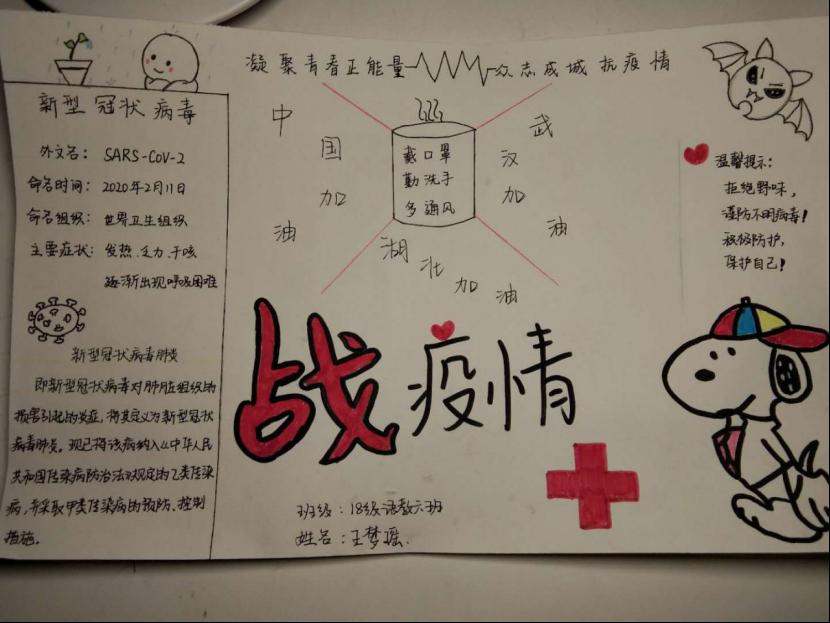 凝聚青春正能量 众志成城抗疫情
新型冠状病毒
外文名: SARS-CoV-2
命名时间: 2020年2月11日
命名组织: 世界卫生组织
主要症状: 发热、乏力、干咳
逐渐出现呼吸困难
新型冠状病毒肺炎
即新型冠状病毒对肺脏组织的
损害引起的炎症,将其定义为新型冠状
病毒肺炎。现已将该病纳入《中华人民
共和国传染病防治法》规定的乙类传染
病,并采取甲类传染病的预防、控制
措施。
中国加油
戴口罩
勤洗手
多通风
武汉加油
湖北加油
温馨提示:
拒绝野味,
谨防不明病毒!
积极防护,
保护自己!
战疫情
班级:18级语教六班
姓名:王梦瑶